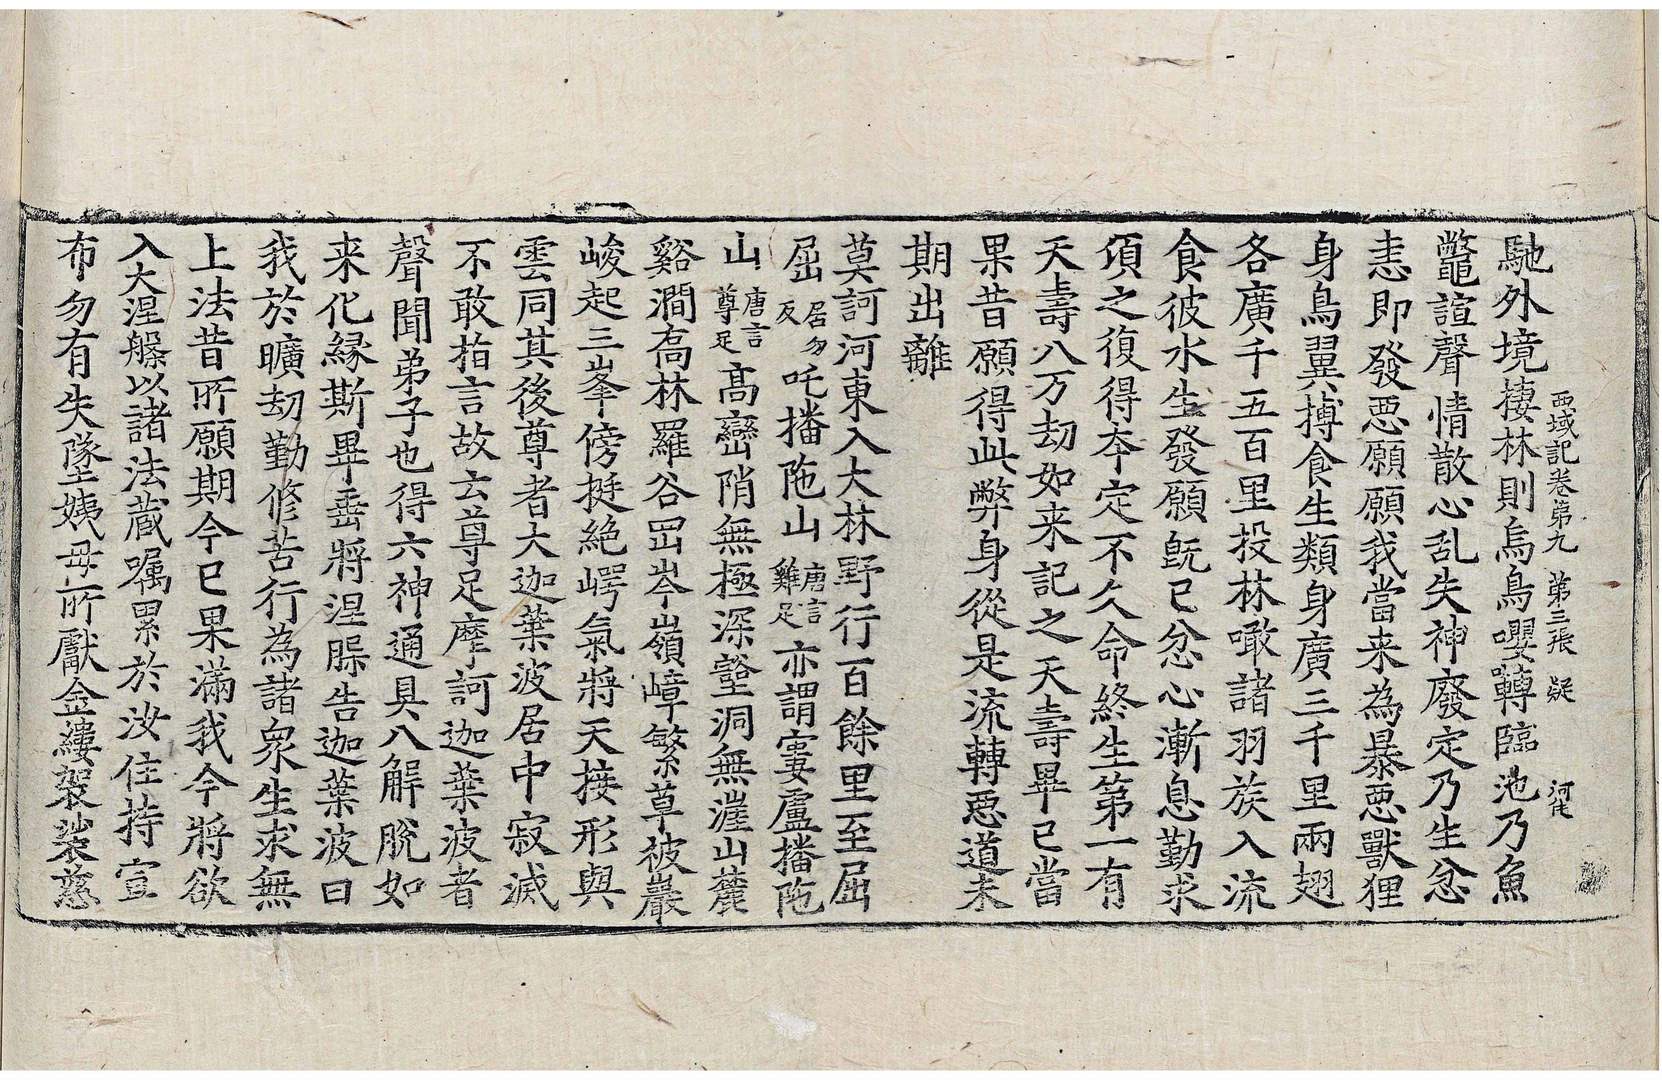 西域記卷第九 第三張 疑 河佗
馳外境棲林則烏鳥嚶囀臨池乃魚
鼈諠聲情散心乱失神廢定乃生忿
恚即發惡願願我當来為暴惡獸狸
身鳥翼搏食生類身廣三千里兩翅
各廣千五百里投林噉諸羽族入流
食彼水生發願旣已忿心漸息勤求
頃之復得本定不久命終生第一有
天壽八万劫如来記之天壽畢已當
果昔願得此弊身從是流轉惡道未
期出離
莫訶河東入大林野行百餘里至屈
屈居勿反吒播陁山唐言雞足亦謂窶盧播陁
山唐言尊足高巒陗無極深壑洞無涯山麓
谿澗喬林羅谷岡岑嶺嶂繁草被巖
峻起三峯傍挺絕崿氣將天接形與
雲同其後尊者大迦葉波居中寂滅
不敢指言故云尊足摩訶迦葉波者
聲聞弟子也得六神通具八解脫如
来化緣斯畢垂將涅槃告迦葉波曰
我於曠劫勤修苦行為諸衆生求無
上法昔所願期今已果滿我今將欲
入大涅槃以諸法藏囑累於汝住持宣
布勿有失墜姨母所獻金縷袈裟慈